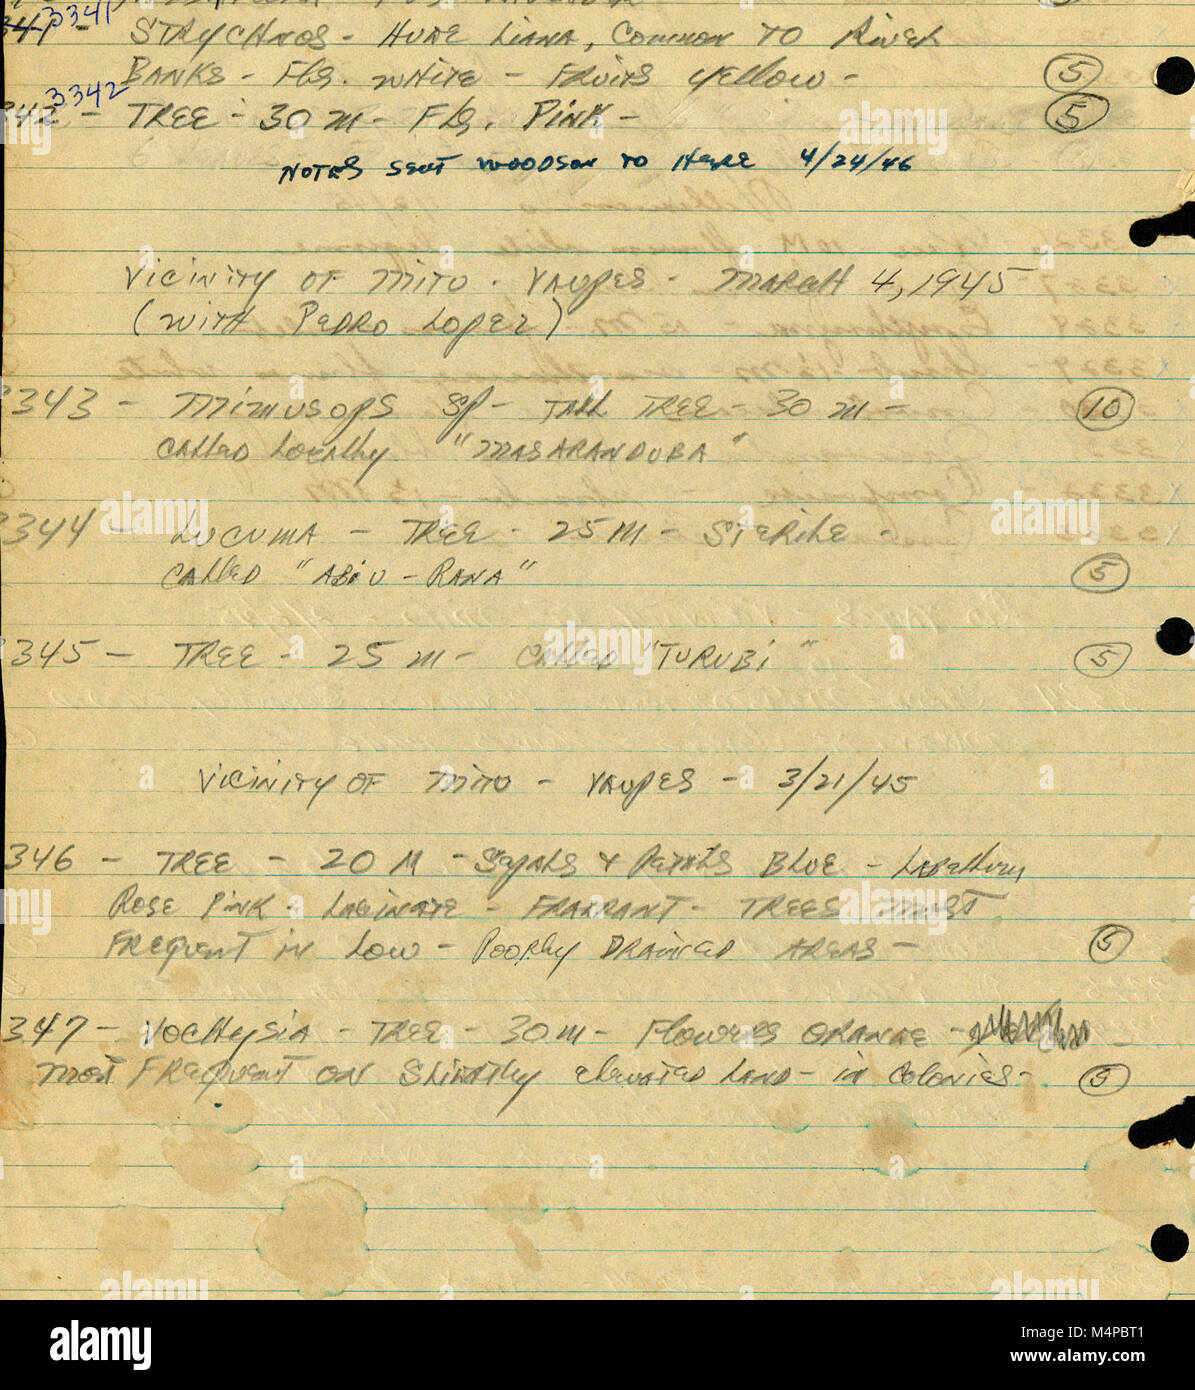 3341
341 - STRYCHNOS - HUGE LIANA, COMMON TO RIVER
BANKS - Fls. WHITE - FRUITS YELLOW - 5
3342
342 - TREE - 30 M - Fls. PINK - 5
NOTES SENT WOODSON TO HERE 4/24/46
VICINITY OF MITU - VAUPES - MARCH 4, 1945
(WITH PEDRO LOPEZ)
3343 - MIMUSOPS SP - TALL TREE - 30 M - 10
CALLED LOCALLY "MASARANDUBA"
3344 - LUCUMA - TREE - 25 M - STERILE -
CALLED "ABIU-RANA" 5
345 - TREE - 25 M - CALLED "TURUBI" 5
VICINITY OF MITU - VAUPES - 3/21/45
346 - TREE - 20 M - SEPALS & PETALS BLUE - LABELLUM
ROSE PINK - LACINATE - FRAGRANT - TREES MOST
FREQUENT IN LOW - POORLY DRAINED AREAS - 5
347 - VOCHYSIA - TREE - 30 M - FLOWERS ORANGE -
MOST FREQUENT ON SLIGHTLY ELEVATED LAND - IN COLONIES - 5
alamy
Image ID: M4PBT1
www.alamy.com